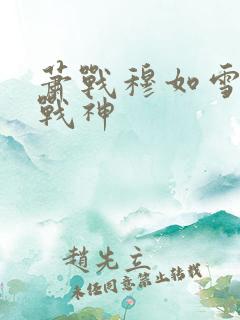 蕭戰穆如雪
戰神
趙先立
未經同意禁止轉載